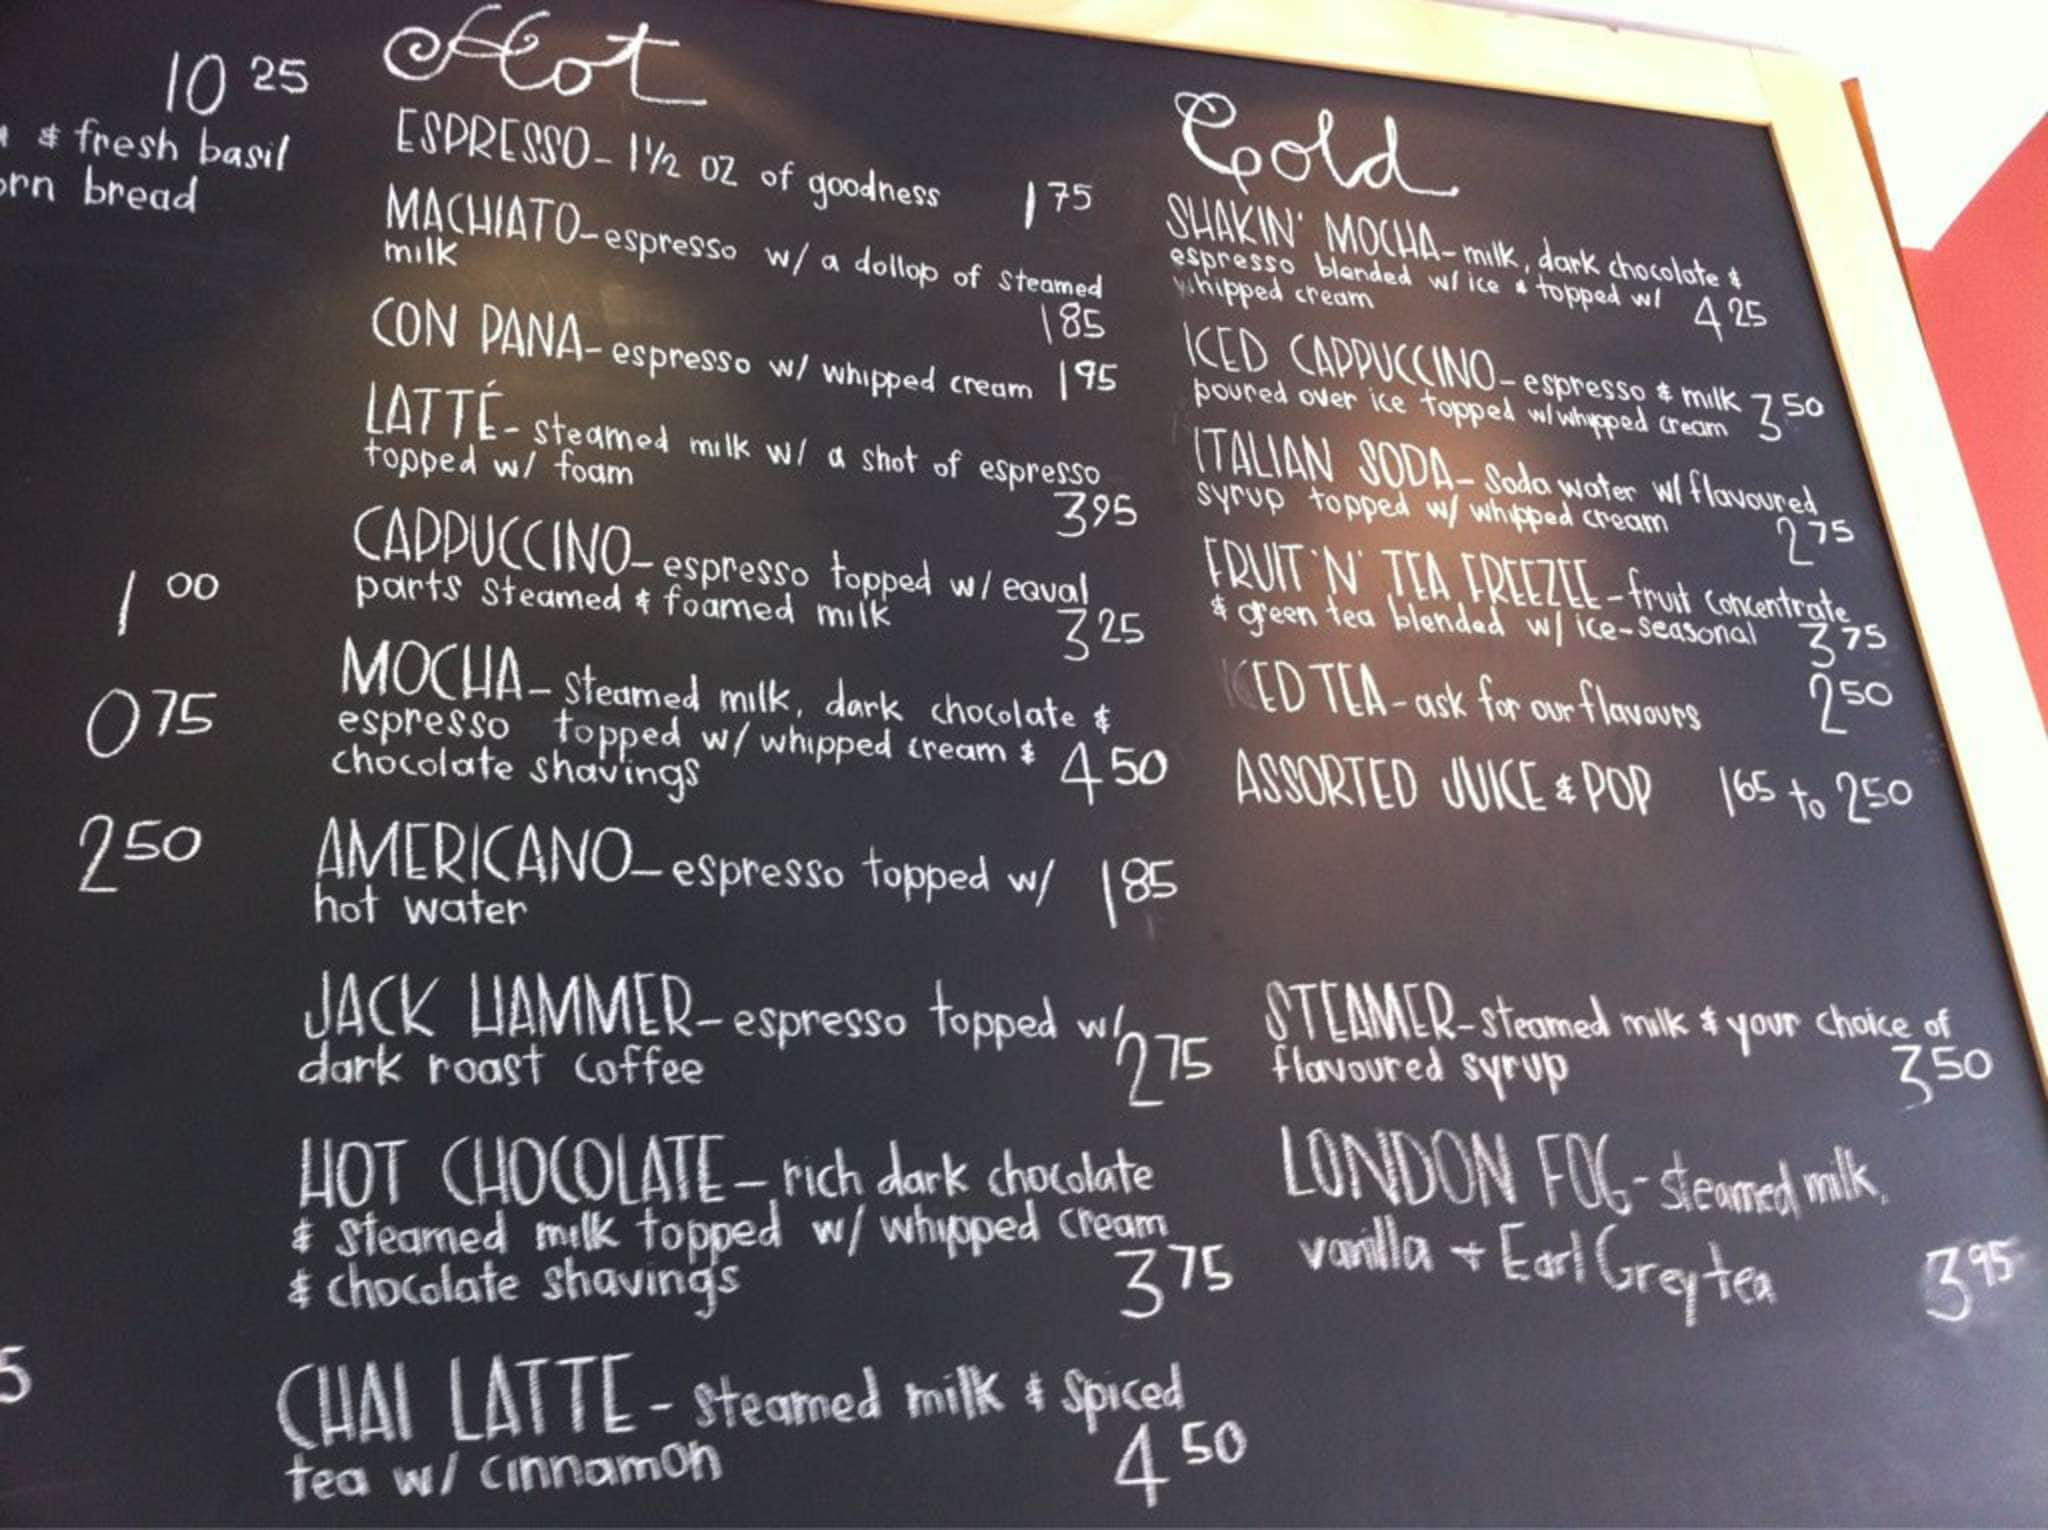 10 25
& fresh basil
bread
1 00
0 75
2 50
5
Hot
ESPRESSO - 1 1/2 OZ of goodness 1 75
MACHIATO - espresso w/ a dollop of steamed
milk 1 85
CON PANA - espresso w/ whipped cream 1 95
LATTÉ - steamed milk w/ a shot of espresso
topped w/ foam 3 95
CAPPUCCINO - espresso topped w/ equal
parts steamed & foamed milk 3 25
MOCHA - steamed milk, dark chocolate &
espresso topped w/ whipped cream &
chocolate shavings 4 50
AMERICANO - espresso topped w/ 1 85
hot water
JACK HAMMER - espresso topped w/
dark roast coffee 2 75
HOT CHOCOLATE - rich dark chocolate
& steamed milk topped w/ whipped cream
& chocolate shavings 3 75
CHAI LATTE - steamed milk & spiced
tea w/ cinnamon 4 50
Cold
SHAKIN' MOCHA - milk, dark chocolate &
espresso blended w/ ice & topped w/
whipped cream 4 25
ICED CAPPUCCINO - espresso & milk
poured over ice topped w/ whipped cream 3 50
ITALIAN SODA - Soda water w/ flavoured
syrup topped w/ whipped cream 2 75
FRUIT 'N' TEA FREEZEE - fruit concentrate
& green tea blended w/ ice - seasonal 3 75
ICED TEA - ask for our flavours 2 50
ASSORTED JUICE & POP 1 65 to 2 50
STEAMER - steamed milk & your choice of
flavoured syrup 3 50
LONDON FOG - steamed milk,
vanilla + Earl Grey tea 3 95